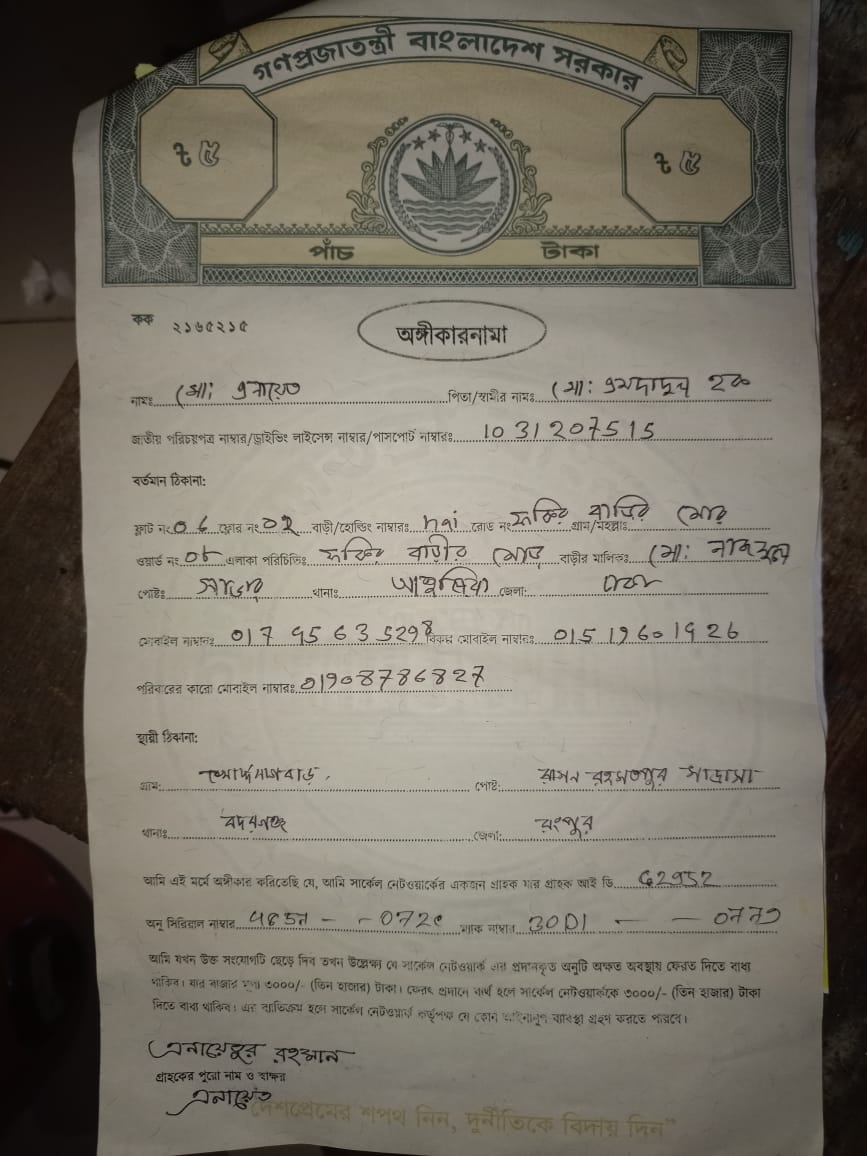 গণপ্রজাতন্ত্রী বাংলাদেশ সরকার
৳ ৫ ৳ ৫
পাঁচ টাকা
কক ২১৬৫২১৫
অঙ্গীকারনামা
নামঃ মো: এনায়েত পিতা/স্বামীর নামঃ মো: এমদাদুল হক
জাতীয় পরিচয়পত্র নাম্বার/ড্রাইভিং লাইসেন্স নাম্বার/পাসপোর্ট নাম্বারঃ 1031207515
বর্তমান ঠিকানা:
ফ্লাট নং 06 ফ্লোর নং 02 বাড়ী/হোল্ডিং নাম্বারঃ nai রোড নং ফকির বাড়ির মোড় গ্রাম/মহল্লাঃ
ওয়ার্ড নং এলাকা পরিচিতিঃ ফকির বাড়ীর মোড় বাড়ীর মালিকঃ মো: নাজমুল
পোষ্টঃ সাভার থানাঃ আশুলিয়া জেলা: ঢাকা
মোবাইল নাম্বারঃ 01795635298 বিকল্প মোবাইল নাম্বারঃ 01519601926
পরিবারের কারো মোবাইল নাম্বারঃ 01908786827
স্থায়ী ঠিকানা:
গ্রাম: পোষ্ট: রহমতপুর মাদ্রাসা
থানাঃ বদরগঞ্জ জেলা: রংপুর
আমি এই মর্মে অঙ্গীকার করিতেছি যে, আমি সার্কেল নেটওয়ার্কের একজন গ্রাহক যার গ্রাহক আই ডি G2952
অনু সিরিয়াল নাম্বার ম্যাক নাম্বার
আমি যখন উক্ত সংযোগটি ছেড়ে দিব তখন উল্লেক্ষ্য যে সার্কেল নেটওয়ার্ক এর প্রদানকৃত অনুটি অক্ষত অবস্থায় ফেরত দিতে বাধ্য
থাকিব। যার বাজার মূল্য ৩০০০/- (তিন হাজার) টাকা। ফেরৎ প্রদানে ব্যর্থ হলে সার্কেল নেটওয়ার্ককে ৩০০০/- (তিন হাজার) টাকা
দিতে বাধ্য থাকিব। এর ব্যতিক্রম হলে সার্কেল নেটওয়ার্ক কর্তৃপক্ষ যে কোন আইনানুগ ব্যবস্থা গ্রহণ করতে পারবে।
এনায়েতুর রহমান
গ্রাহকের পুরো নাম ও স্বাক্ষর
এনায়েত
দেশপ্রেমের শপথ নিন, দুর্নীতিকে বিদায় দিন"